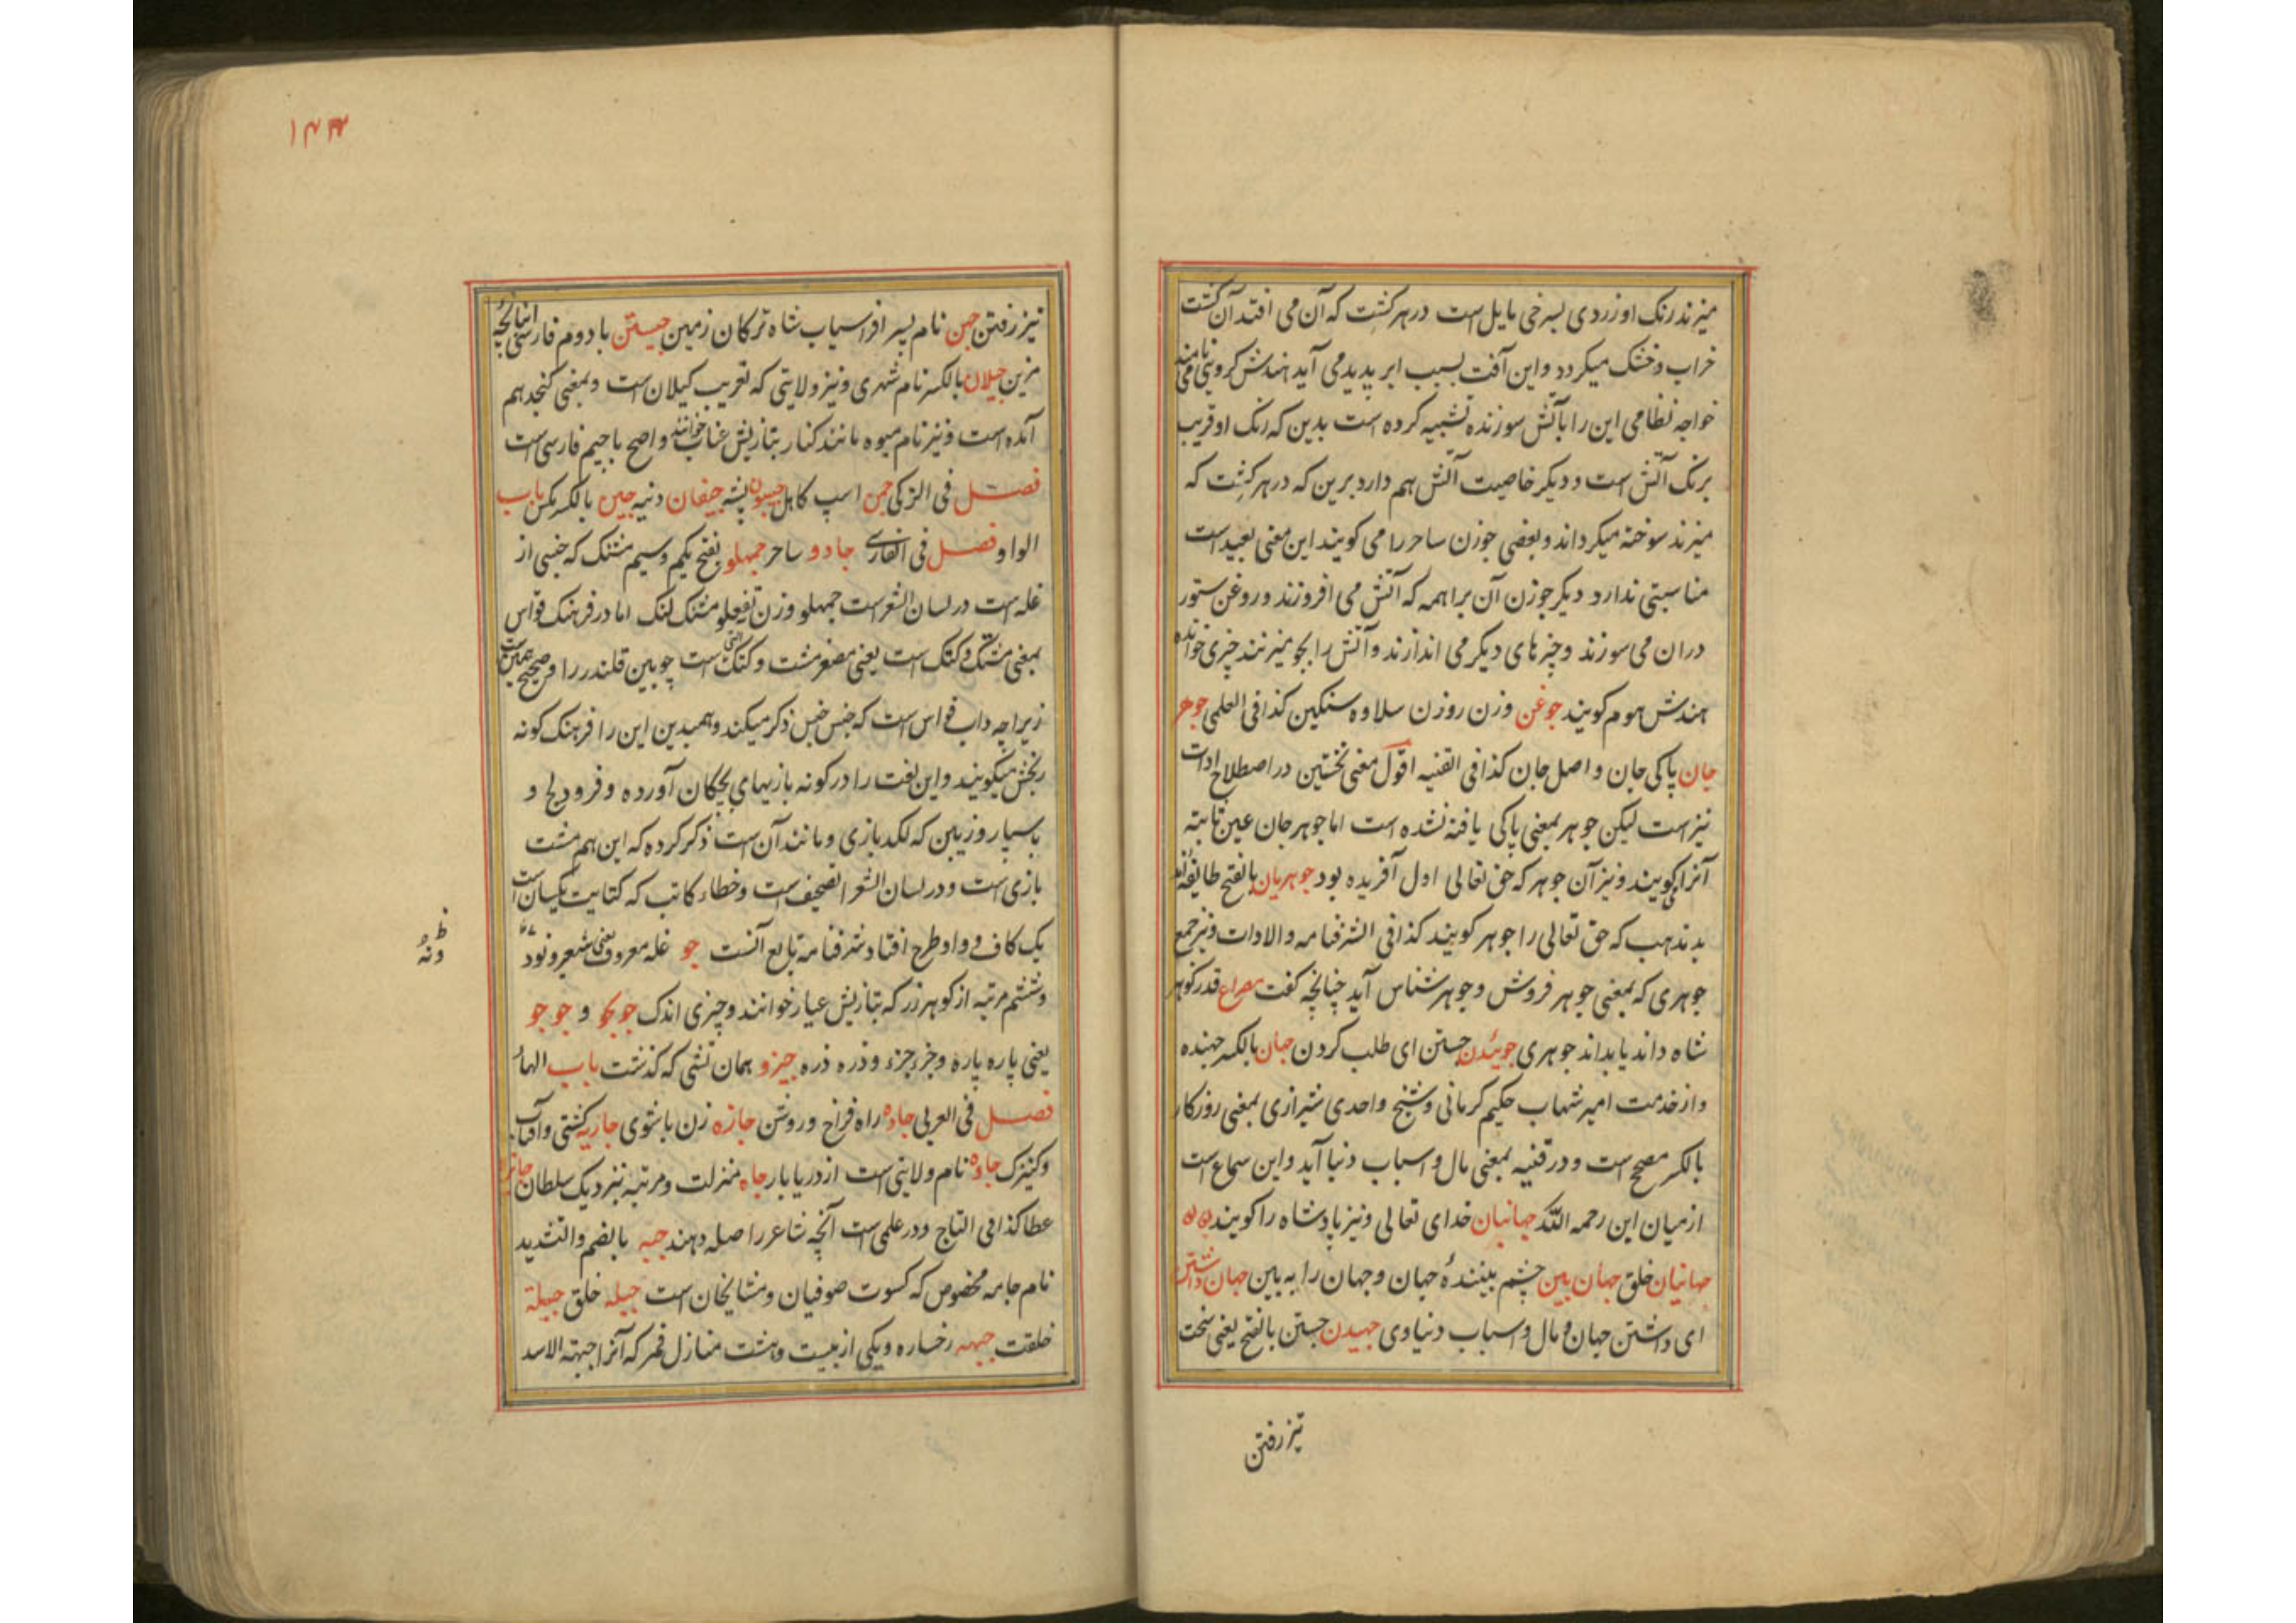 میزند رنک او زردی بسرخی مایل است در هر کشت که آن می افتد آن کشت
خراب و خشک میکردد و این آفت بسبب ابر پدید می آید هندش کرویی می نامند
خواجه نظامی این را بآتش سوزنده تشبیه کرده است بدین که رنک او قریب
برنک آتش است و دیکر خاصیت آتش هم دارد برین که در هر کشت که
میزند سوخته میکرداند و بعضی جوزن ساحر را می کویند این معنی بعید است
مناسبتی ندارد دیکر جوزن آن براهمه که آتش می افروزند و روغن ستور
دران می سوزند و چیزهای دیکر می اندازند و آتش را بجو میزنند چیزی خوانده
هندش هوم کویند جوغن وزن روزن سلاوه سنکین کذا فی العلمی جوهر
جان پاکی جان و اصل جان کذا فی القنیه اقول معنی نخستین در اصطلاح ادات
نیز است لیکن جوهر بمعنی پاکی یافته نشده است اما جوهر جان عین ثابته
آنرا کویند و نیز آن جوهر که حق تعالی اول آفریده بود جوهریان بالفتح طایفه اند
بد مذهب که حق تعالی را جوهر کویند کذا فی الشرفنامه و الادات و نیز جمع
جوهری که بمعنی جوهر فروش و جوهر شناس آید چنانچه کفت مصراع قدر کوهر
شاه داند یا بداند جوهری جوئیدن جستن ای طلب کردن جهان بالکسر جهنده
و از خدمت امیر شهاب حکیم کرمانی و شیخ واحدی شیرازی بمعنی روزکار
بالکسر مصحح است و در قنیه بمعنی مال و اسباب دنیا آید و این سماع است
از میان این رحمه الله جهانبان خدای تعالی و نیز پادشاه را کویند
جهانیان خلق جهان بین چشم بینندهٔ جهان و جهان را به بین جهان داشتن
ای داشتن جهان و مال و اسباب دنیاوی جهیدن جستن بالفتح یعنی سخت
تیز رفتن
۱۴۳
نیز رفتن جهن نام پسر افراسیاب شاه ترکان زمین جیستن با دوم فارسی
مزین جیلان بالکسر نام شهری و نیز ولایتی که تعریب کیلان است و بمعنی کنجد هم
آمده است و نیز نام میوه مانند کنار بتازیش عناب خوانند و اصح با جیم فارسی است
فصل فی الترکی جمن اسپ کاهل جیبون پشه جیقان دنبه جین بالکسر یکس باب
الواو فصل فی الفارسی جادو ساحر جمهلو بفتح یکم و سیم مشنک که جنسی از
غله است در لسان الشعراست جمهلو وزن تفعیلو مشنک لنک اما در فرهنک قواس
بمعنی مشتک و کتک است یعنی مصغر مشت و کتک است چوبین قلندر را و صحیح همین است
زیرا چه داب قواس است که جنس جنس ذکر میکند و همبدین این را فرهنک کونه
بخش میکویند و این لغت را در کونه بازیهای بچکان آورده و فرود یخ و
باسپار و زیبن که لکد بازی و مانند آن است ذکر کرده که این هم مشت
بازی است و در لسان الشعرا تصحیف است و خطاء کاتب که کتابت یکسان است
یک کاف و واو طرح افتاد شرفنامه تابع آنست جو غله معروف یعنی شعیر و نود
و ششم مرتبه از کوهر زر که بتازیش عیار خوانند و چیزی اندک جو بجو و جو جو
یعنی پاره پاره و جزء جزء و ذره ذره جیزو همان تشی که کذشت باب الهاء
فصل فی العربی جاده راه فراخ و روشن جازه زن با شوی جاریه کشتی و آفتاب
و کنیزک جاوه نام ولایتی است از دریا بار جاه منزلت و مرتبه نزدیک سلطان جائزه
عطا کذا فی التاج و در علمی است آنچه شاعر را صله دهند جبه بالضم و التشدید
نام جامه مخصوص که کسوت صوفیان و مشایخان است جبله خلق جبلة
خلقت جبهه رخساره و یکی از بیست و هشت منازل قمر که آنرا جبهة الاسد